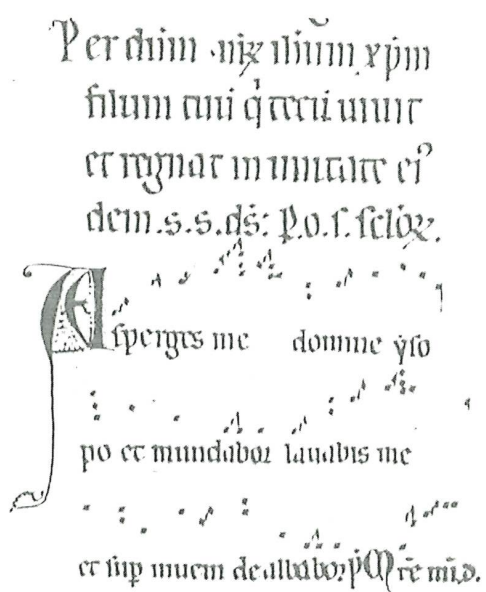 Per dn̄m .nr̄ꝝ ih̄um xp̄m
filium tuū q̇ tecū uiuit
et regnat in unitate eiꝰ
dem .s.s.ds̄: p.o.s. sclōꝝ.
Asperges me domine ẏso
po et mundabor lauabis me
et sup̄ niuem dealbabor p̄s M r̄e m̄i.d.